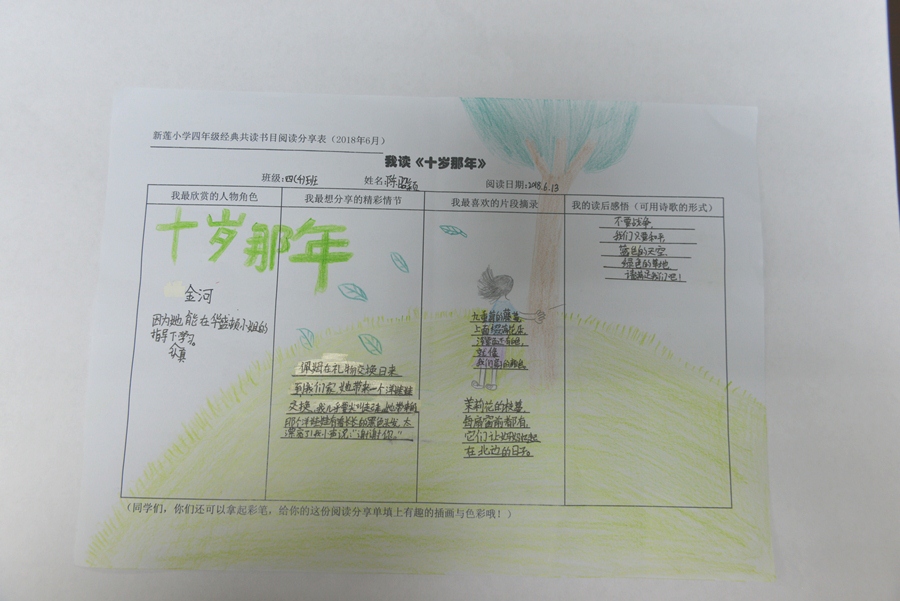 新莲小学四年级经典共读书目阅读分享表（2018年6月）
我读《十岁那年》
班级:四(4)班 姓名:陈 颖 阅读日期:2018.6.13
我最欣赏的人物角色
我最想分享的精彩情节
我最喜欢的片段摘录
我的读后感悟（可用诗歌的形式）
十岁那年
金河
因为她能在华盛顿小姐的
指导下学习。
认真
佩姆在礼物交换日来
到我们家,她带来一个洋娃娃
交换。我几乎要尖叫
那个洋娃娃有着长长的黑色头发,太
漂亮了!我小声说:"谢谢你。"
九重葛的藤蔓,
上面
就像
茉莉花的枝蔓,
每扇窗前都有,
它们让 想起
在北边的日子。
不要战争,
我们只要和平
蓝色的天空,
绿色的草地,
请 我们吧!
(同学们，你们还可以拿起彩笔，给你的这份阅读分享单填上有趣的插画与色彩哦！)